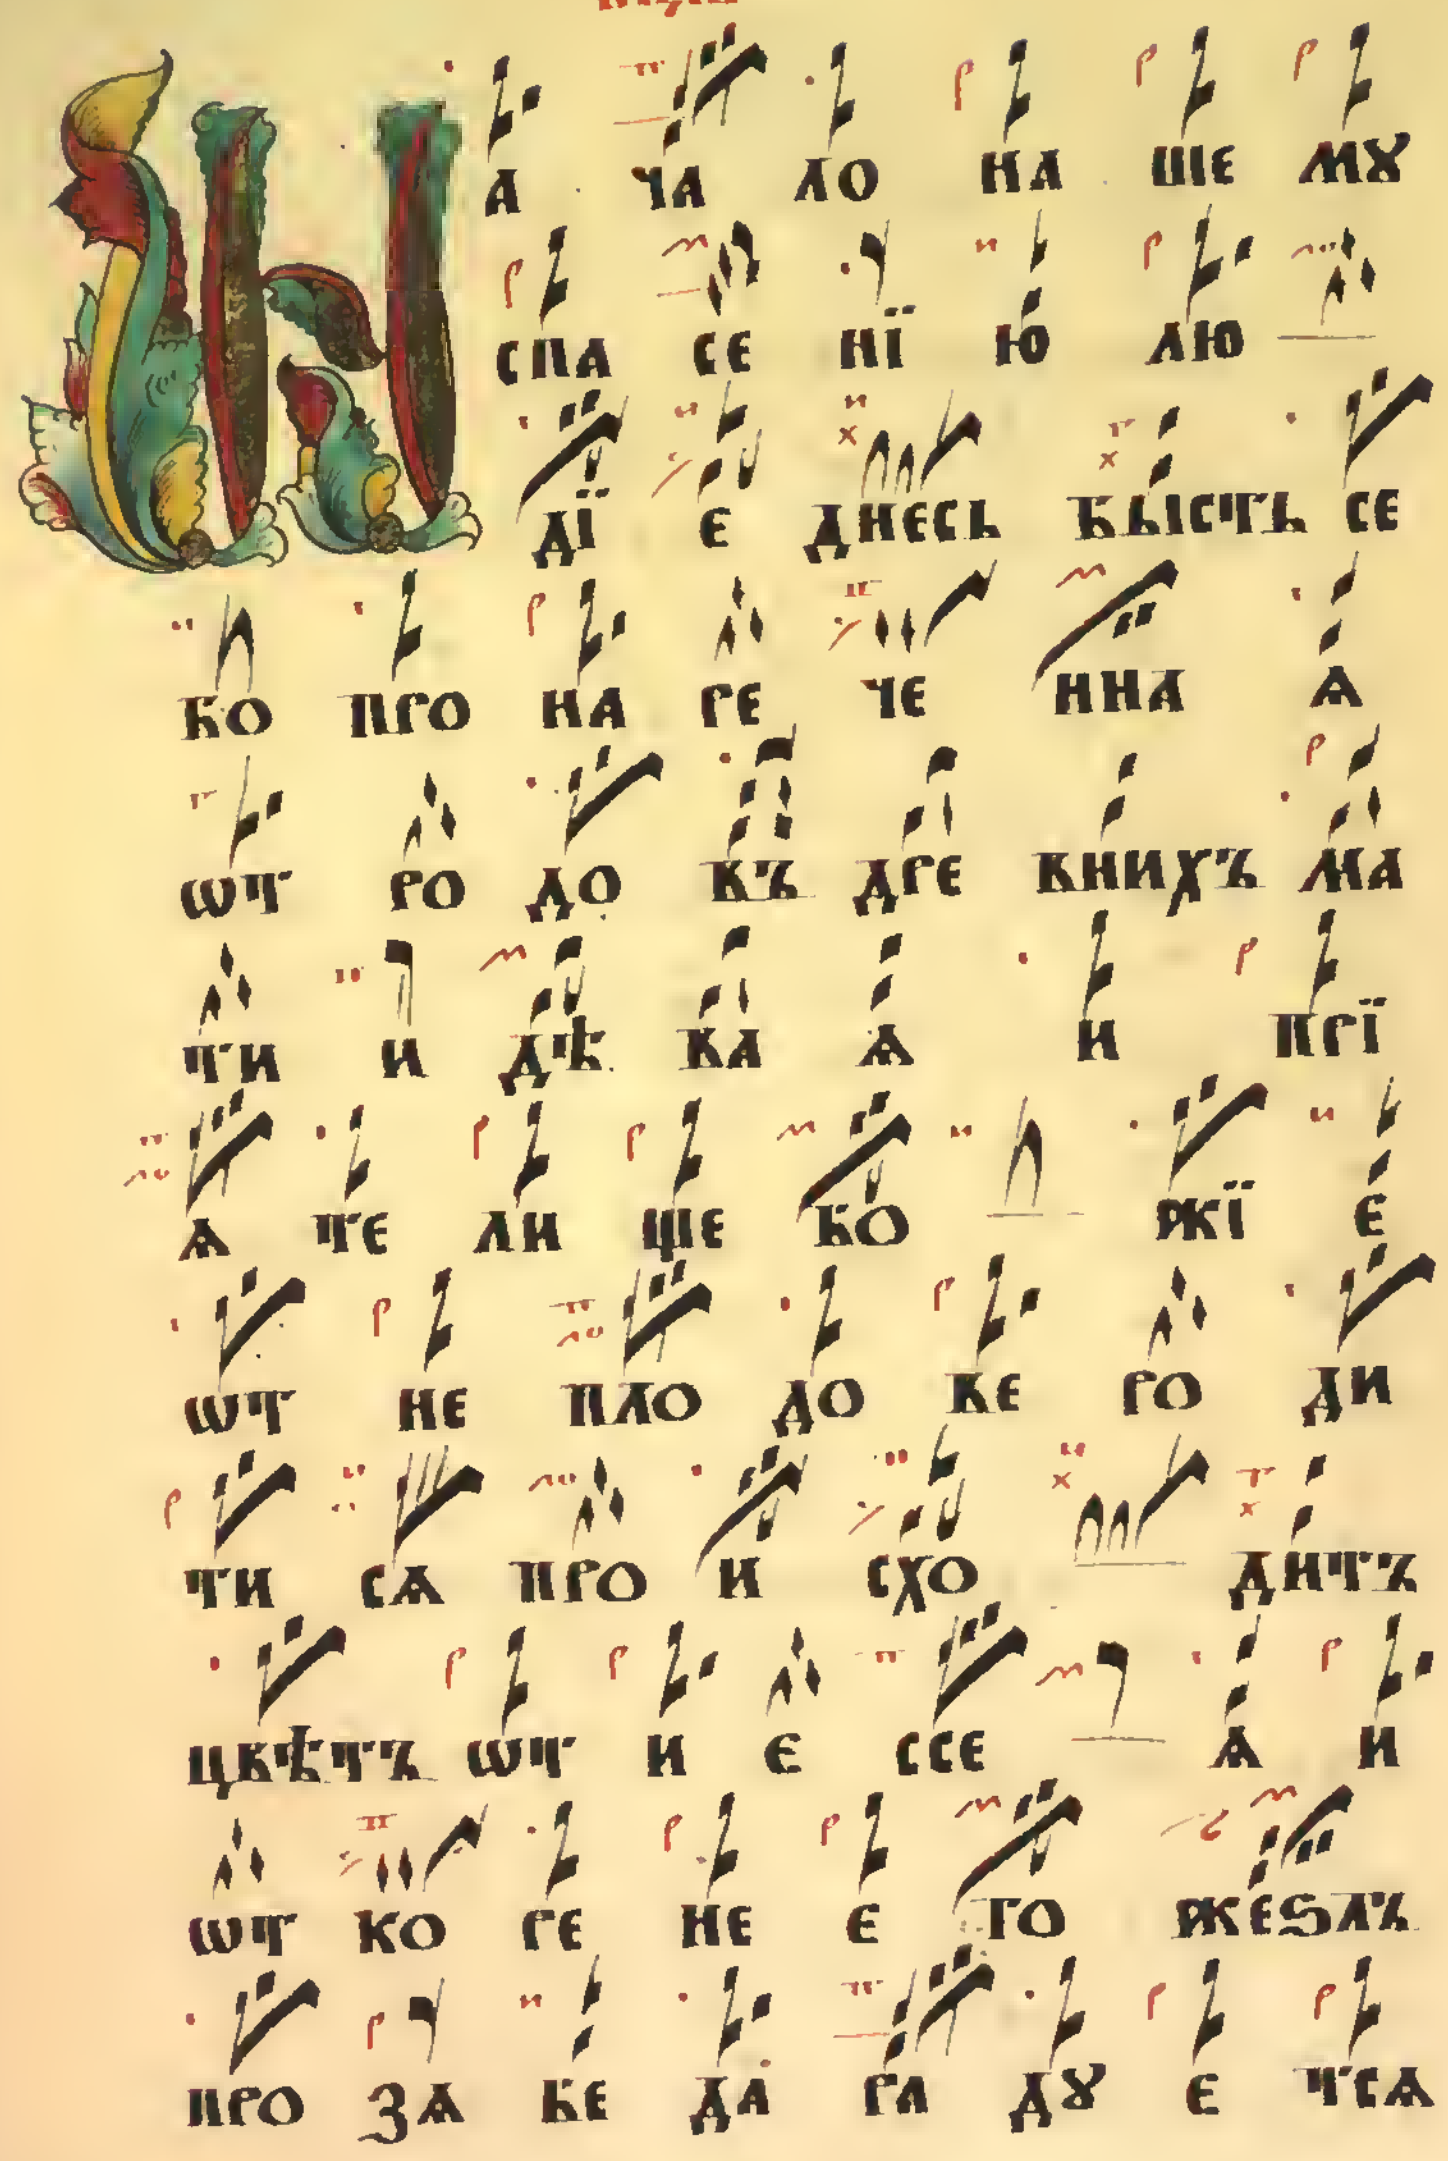 На ча ло на ше мꙋ
спа се нї ю лю
дї є днесь бысть се
бо про на ре че нна ѧ
ѿ ро до въ дре внихъ ма
ти и дѣ ва ѧ и прї
ѧ те ли ще бо жї е
ѿ не пло до ве ро ди
ти сѧ про и схо дитъ
цвѣтъ ѿ и є ссе ѧ и
ѿ ко ре не є го жеѕлъ
про зѧ бе да ра дꙋ є тсѧ